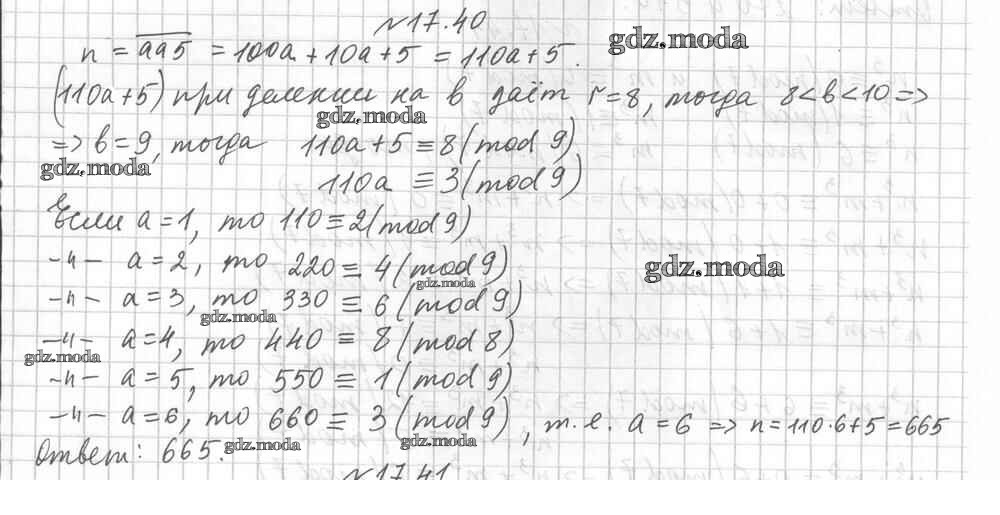 №17.40
n = aa5 = 100a + 10a + 5 = 110a + 5.
gdz.moda
(110a+5) при делении на b даёт r=8, тогда 8<b<10 =>
gdz.moda
=> b=9, тогда 110a+5 ≡ 8(mod 9)
gdz.moda
110a ≡ 3(mod 9)
Если a=1, то 110≡2(mod 9)
-"- a=2, то 220 ≡ 4(mod 9)
gdz.moda
gdz.moda
-"- a=3, то 330 ≡ 6(mod 9)
gdz.moda
-"- a=4, то 440 ≡ 8(mod 8)
gdz.moda
-"- a=5, то 550 ≡ 1(mod 9)
-"- a=6, то 660 ≡ 3(mod 9), т.е. a=6 => n=110·6+5=665
Ответ: 665.
gdz.moda
gdz.moda
№17.41